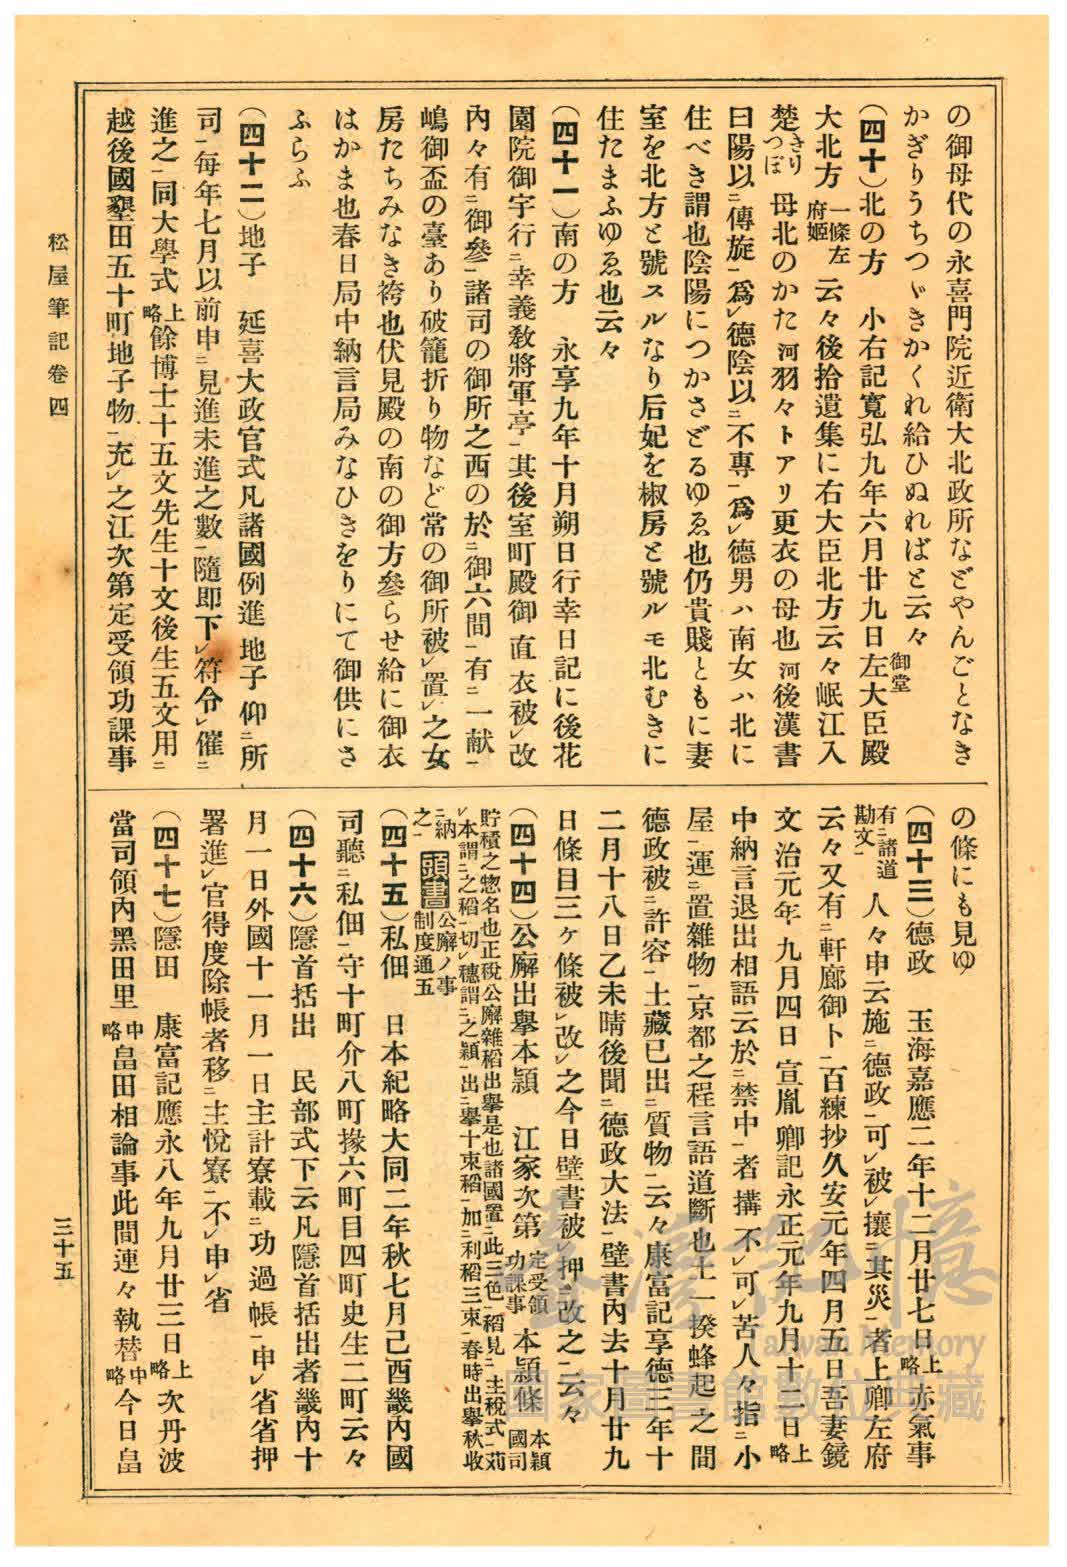 の御母代の永喜門院近衛大北政所などやんごとなき
かぎりうちつゞきかくれ給ひぬればと云々
(四十)北の方 小右記寬弘九年六月廿九日左大臣殿御堂
大北方一條左府姬云々後拾遺集に右大臣北方云々岷江入
楚きりつぼ母北のかた河羽々トアリ更衣の母也河後漢書
曰陽以ニ傳旋一爲レ德陰以ニ不專一爲レ德男ハ南女ハ北に
住べき謂也陰陽につかさどるゆゑ也仍貴賤ともに妻
室を北方と號スルなり后妃を椒房と號ルモ北むきに
住たまふゆゑ也云々
(四十一)南の方 永享九年十月朔日行幸日記に後花
園院御宇行ニ幸義敎將軍亭一其後室町殿御直衣被レ改
內々有ニ御參一諸司の御所之西の於ニ御六間一有ニ一献一
嶋御盃の臺あり破籠折り物など常の御所被レ置レ之女
房たちみなき袴也伏見殿の南の御方參らせ給に御衣
はかま也春日局中納言局みなひきをりにて御供にさ
ふらふ
(四十二)地子 延喜大政官式凡諸國例進地子仰ニ所
司一每年七月以前申ニ見進未進之數一隨即下レ符令レ催ニ
進之一同大學式上略餘博士十五文先生十文後生五文用ニ
越後國墾田五十町地子物一充レ之江次第定受領功課事
の條にも見ゆ
(四十三)德政 玉海嘉應二年十二月廿七日上略赤氣事
有ニ諸道勘文一人々申云施ニ德政一可レ被レ攘ニ其災一者上卿左府
云々又有ニ軒廊御卜一百練抄久安元年四月五日吾妻鏡
文治元年九月四日宣胤卿記永正元年九月十二日上略
中納言退出相語云於ニ禁中一者搆不レ可レ苦人々指ニ小
屋一運ニ置雜物一京都之程言語道斷也土一揆蜂起之間
德政被ニ許容一土藏已出ニ質物一云々康富記享德三年十
二月十八日乙未晴後聞ニ德政大法一壁書內去十月廿九
日條目三ケ條被レ改レ之今日壁書被レ押ニ改之一云々
(四十四)公廨出擧本穎 江家次第定受領功課事本穎條本穎國司
貯積之惣名也正稅公廨雜稻出擧是也諸國置ニ此三色一稻見ニ主稅式一苅
レ本謂ニ之稻一切レ穗謂ニ之穎一出ニ擧十束稻一加ニ利稻三束一春時出擧秋收
ニ納之一頭書公廨ノ事制度通五
(四十五)私佃 日本紀略大同二年秋七月己酉畿內國
司聽ニ私佃一守十町介八町掾六町目四町史生二町云々
(四十六)隱首括出 民部式下云凡隱首括出者畿內十
月一日外國十一月一日主計寮載ニ功過帳一申レ省省押
署進レ官得度除帳者移ニ主悅寮一不レ申レ省
(四十七)隱田 康富記應永八年九月廿三日上略次丹波
當司領內黑田里中略畠田相論事此間連々執替中略今日畠
松屋筆記卷四
三十五
臺灣記憶
Taiwan Memory
國家圖書館數位典藏